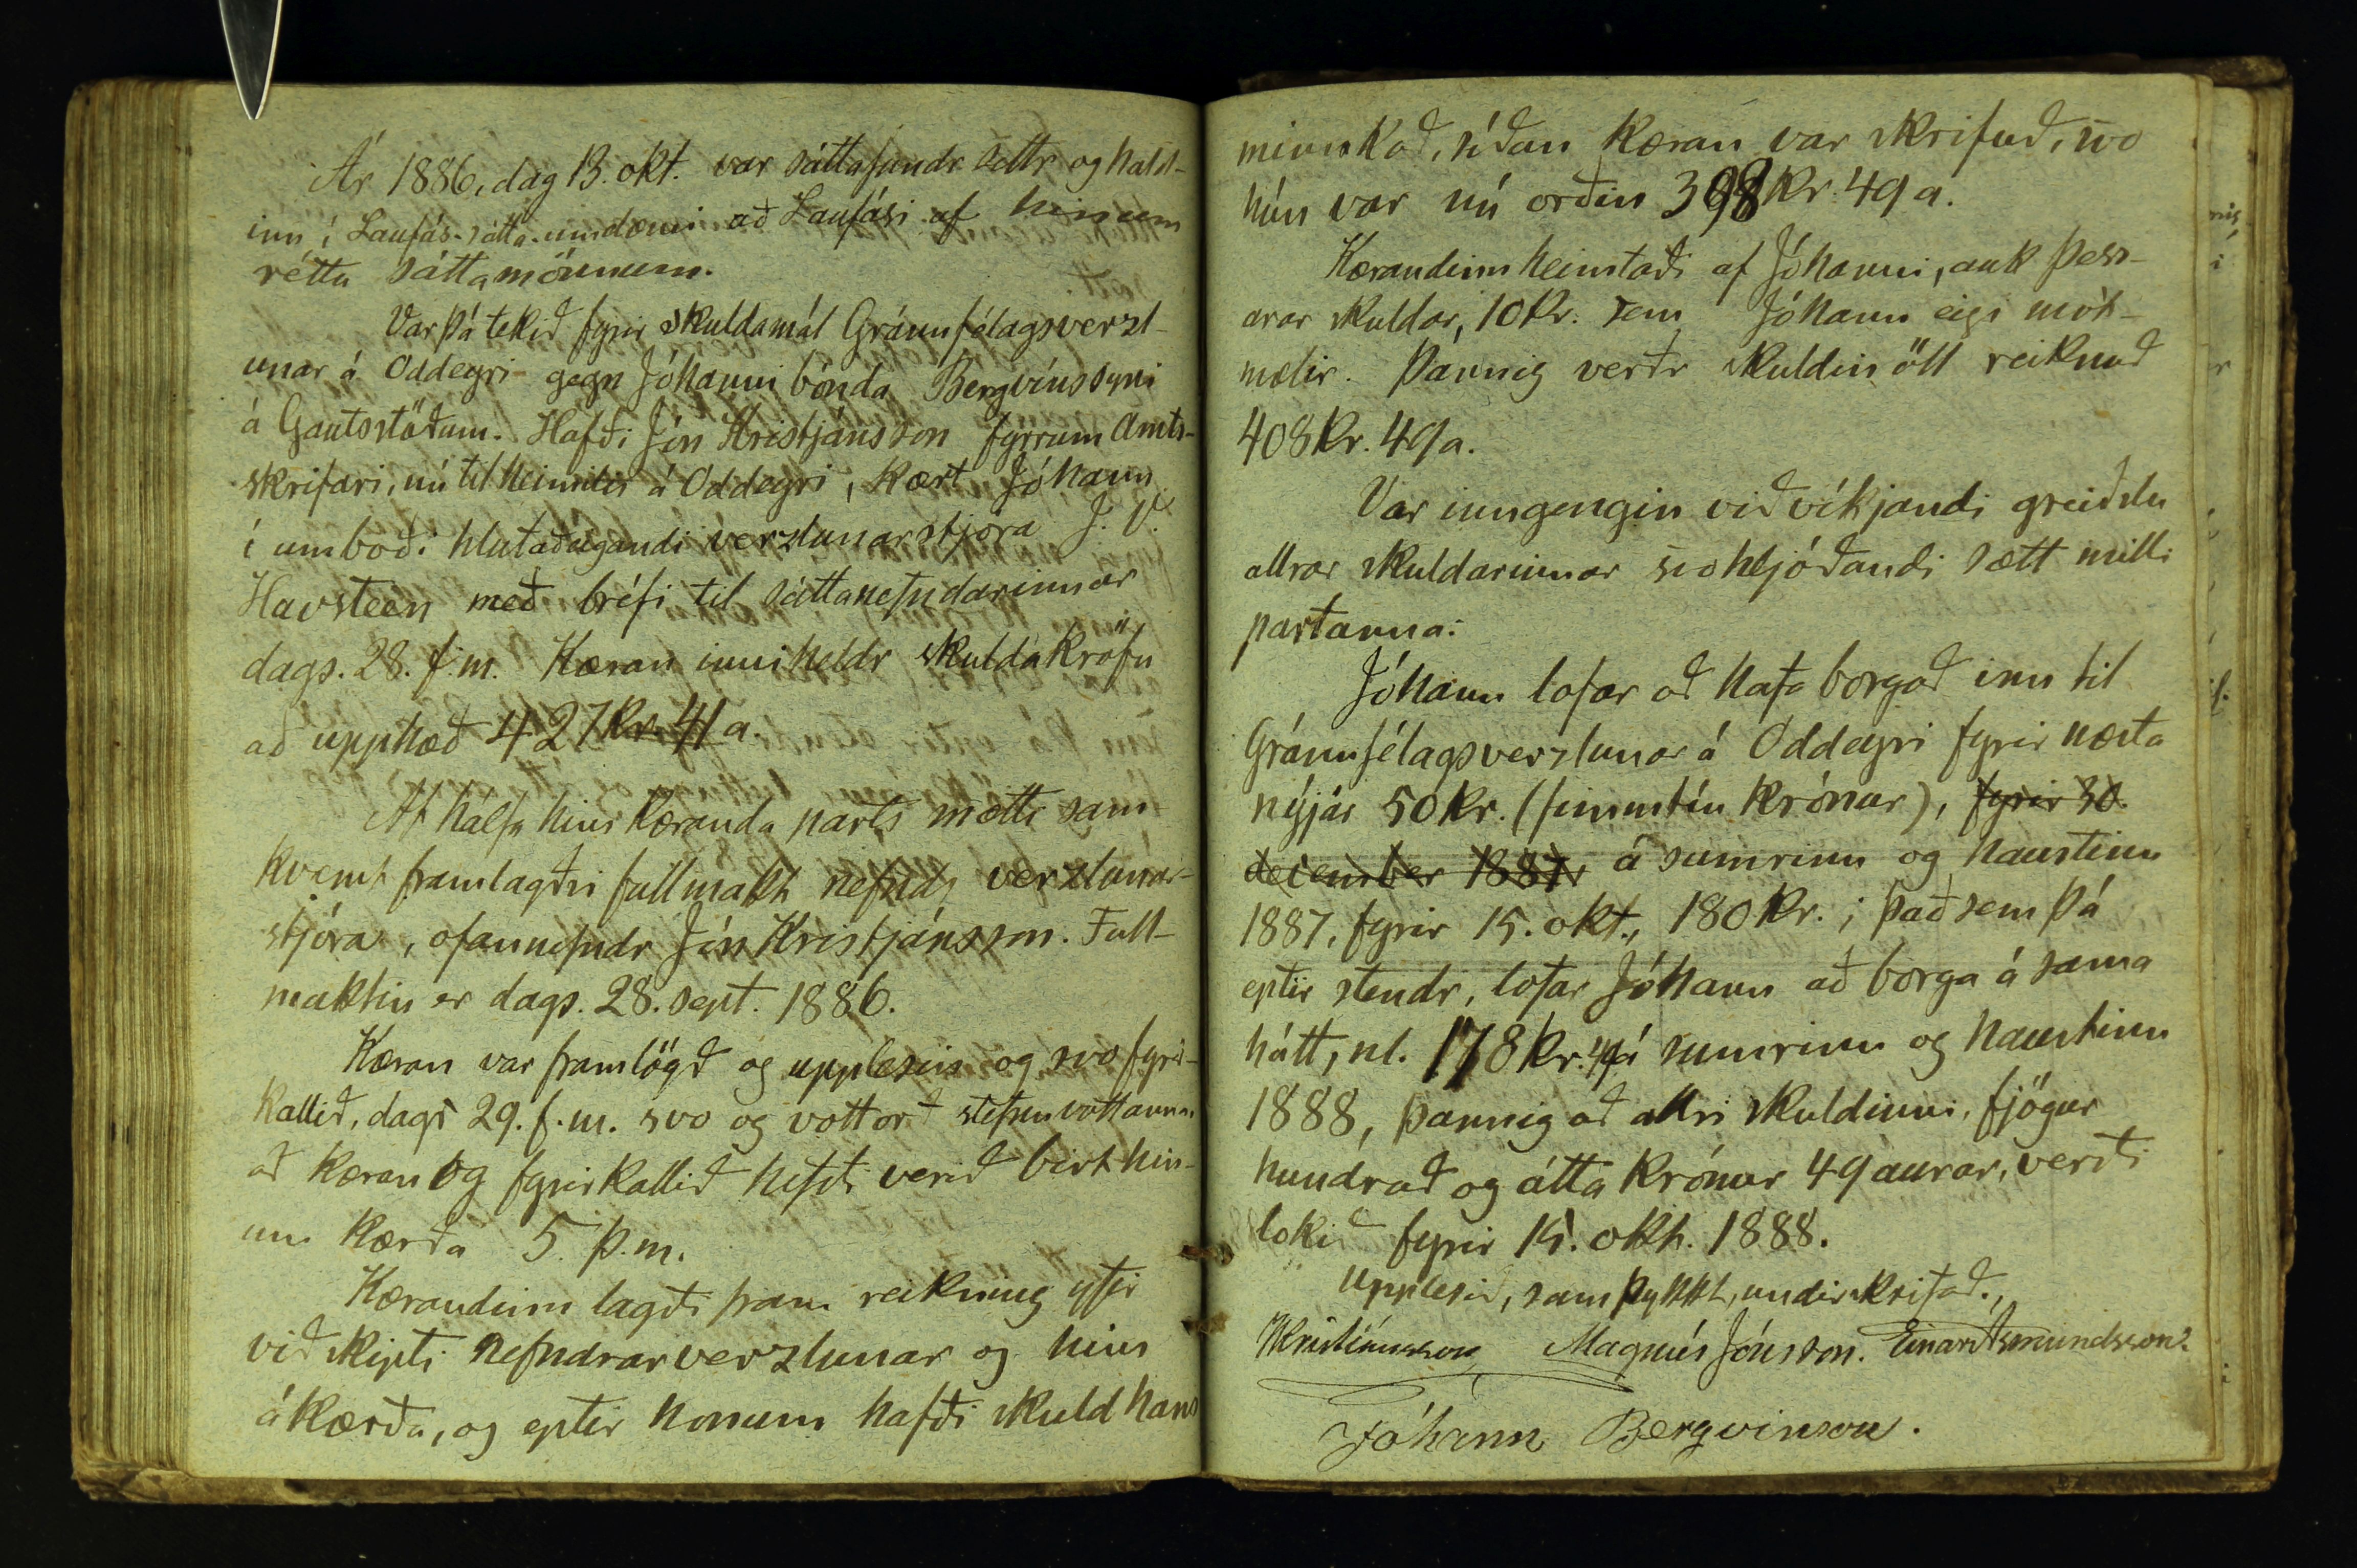 Ár 1886, dag 13. okt. var sáttafundr settr og hald-
inn í Laufás-sátta-umdæmi að Laufási af hinum
rétta sáttamönnum.
Var þá tekið fyrir skuldamál Gránufélagsverzl-
unar á Oddeyri gegn Jóhanni bónda Bergvinssyni
á Gautsstöðum. Hafði Jón Kristjánsson fyrrum amts-
skrifari, nú til heimilis á Oddeyri, kært Jóhann
í umboði hlutaðeigandi verzlunarstjóra J. V.
Havsteen með bréfi til sáttanefndarinnar
dags. 28. f. m. Kæran inniheldr skuldakröfu
að upphæð 427 kr. 41 a.
Af hálfu hins kæranda parts mætti sam-
kvæmt framlagðri fullmakt nefnds verzlunar-
stjóra, ofannefndr Jón Kristjánsson. Full-
maktin er dags. 28. sept. 1886.
Kæran var framlögð og upplesin og svo fyrir-
kallið, dags 29. f. m. svo og vottorð stefnuvottanna
að kæran og fyrirkallið hefði verið birt hin-
um kærða 5. þ. m.
Kærandinn lagði fram reikning yfir
viðskipti nefndrar verzlunar og hins
ákærða, og eptir honum hafði skuld hans
minnkað, síðan kæran var skrifuð, svo
hún var nú orðin 398 kr. 49 a.
Kærandinn heimtaði af Jóhanni, auk þess-
arar skuldar, 10 kr. sem Jóhann eigi mót-
mælir. Þannig verðr skuldin öll reiknuð
408 kr. 49 a.
Var inngengin viðvíkjandi greiðslu
allrar skuldarinnar svohljóðandi sætt milli
partanna:
Jóhann lofar að hafa borgað inn til
Gránufélagsverzlunar á Oddeyri fyrir næsta
nýjár 50 kr. (fimmtíu krónur), fyrir 30.
december 1887, á sumrinu og haustinu
1887, fyrir 15. okt., 180 kr.; það sem þá
eptir stendr, lofar Jóhann að borga á sama
hátt, nl. 178 kr. 49 á sumrinu og haustinu
1888, þannig að allri skuldinni, fjögur
hundrað og átta krónur 49 aurar, verði
lokið fyrir 15. okt. 1888.
Upplesið, samþykkt, undirskrifað.,
JKristjánsson Magnús Jónsson. Einar Ásmundsson.
Jóhann Bergvinson.